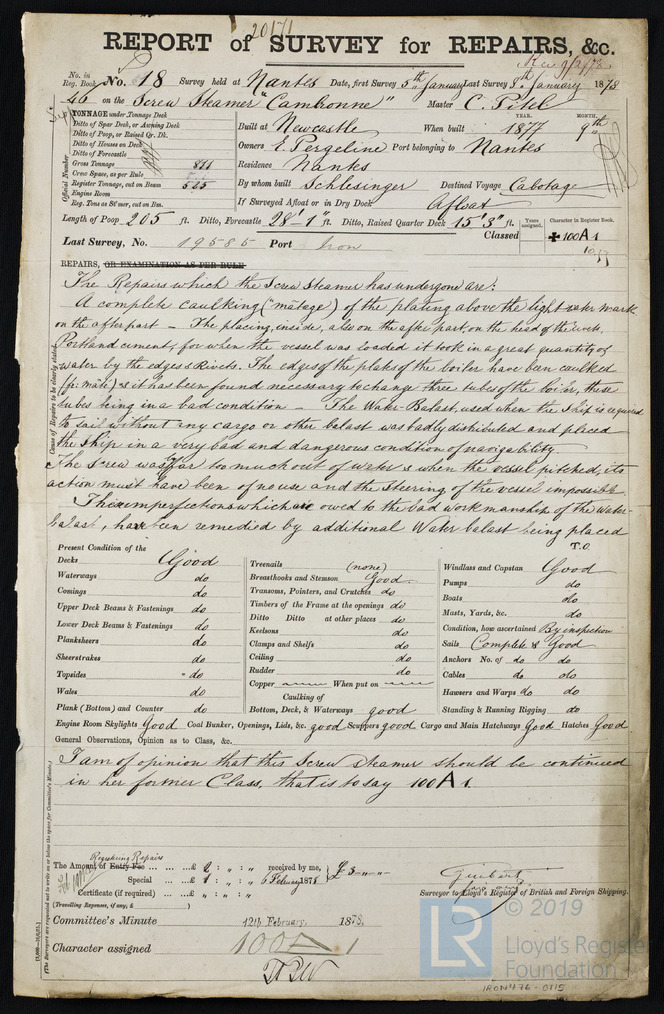 20171
REPORT of SURVEY for REPAIRS, &c.
Rec 9/2/78
No. in Reg. Book No. 18 Survey held at Nantes Date, first Survey 5th January Last Survey 8th January 1878
46 on the Screw Steamer "Cambronne" Master C. Pitel
TONNAGE under Tonnage Deck
Ditto of Spar Deck, or Awning Deck
Ditto of Poop, or Raised Qr. Dk.
Ditto of Houses on Deck
Ditto of Forecastle
Gross Tonnage 811
Crew Space, as per Rule
Register Tonnage, cut on Beam 525
Engine Room
Reg. Tons as St'mer, cut on Bm.
Official Number
YEAR. MONTH.
Built at Newcastle When built 1877 9th
Owners E. Pergeline Port belonging to Nantes
Residence Nantes
By whom built Schlesinger Destined Voyage Cabotage
If Surveyed Afloat or in Dry Dock Afloat
Length of Poop 205 ft. Ditto, Forecastle 28'-1" ft. Ditto, Raised Quarter Deck 15'3" ft.
Years assigned. Character in Register Book.
Last Survey, No. 19585 Port Iron Classed ✠100A1
10,77
REPAIRS, OR EXAMINATION AS PER RULE
Cause of Repairs to be clearly stated.
The Repairs which the Screw Steamer has undergone are:
A complete caulking ("matage") of the plating above the light-water mark
on the after part – The placing, inside, also on the after part, on the head of the rivets,
Portland cement, for when the vessel was loaded it took in a great quantity of
water by the edges & Rivets. The edges of the plates of the boiler have been caulked
& it has been found necessary to change three tubes of the boiler, these
tubes being in a bad condition – The Water-Balast, used when the Ship is required
to sail without any cargo or other balast was badly distributed and placed
the Ship in a very bad and dangerous condition of navigability.
The Screw was by far too much out of water & when the vessel pitched, its
action must have been of no use and the steering of the vessel impossible
These imperfections which are owed to the bad workmanship of the Water-
balast, have been remedied by additional Water balast being placed
T.O
Present Condition of the
Decks Good
Waterways do
Comings do
Upper Deck Beams & Fastenings do
Lower Deck Beams & Fastenings do
Planksheers do
Sheerstrakes do
Topsides do
Wales do
Plank (Bottom) and Counter do
Treenails (none)
Breasthooks and Stemson Good
Transoms, Pointers, and Crutches do
Timbers of the Frame at the openings do
Ditto Ditto at other places do
Keelsons do
Clamps and Shelfs do
Ceiling do
Rudder do
Copper When put on
Caulking of
Bottom, Deck, & Waterways good
Windlass and Capstan Good
Pumps do
Boats do
Masts, Yards, &c. do
Condition, how ascertained By inspection
Sails Complete & Good
Anchors No. of do do
Cables do do
Hawsers and Warps do do
Standing & Running Rigging do
Engine Room Skylights Good Coal Bunker, Openings, Lids, &c. good Scuppers good Cargo and Main Hatchways Good Hatches Good
General Observations, Opinion as to Class, &c.
I am of opinion that this Screw Steamer should be continued
in her former Class, that is to say 100 A 1.
Registering Repairs
The Amount of Entry Fee £ 2 : „ : „ received by me,
Special £ 1 : „ : „ 6 February 1878 £3 „ „
Certificate (if required) £ „ : „ : „
(Travelling Expenses, if any, £ )
Guibert
Surveyor to Lloyd's Register of British and Foreign Shipping.
Committee's Minute 12th February, 1878.
Character assigned 100A1
(The Surveyors are requested not to write on or below the space for Committee's Minute.)
© 2019
LR
Lloyd's Register
Foundation
IRON476-0115